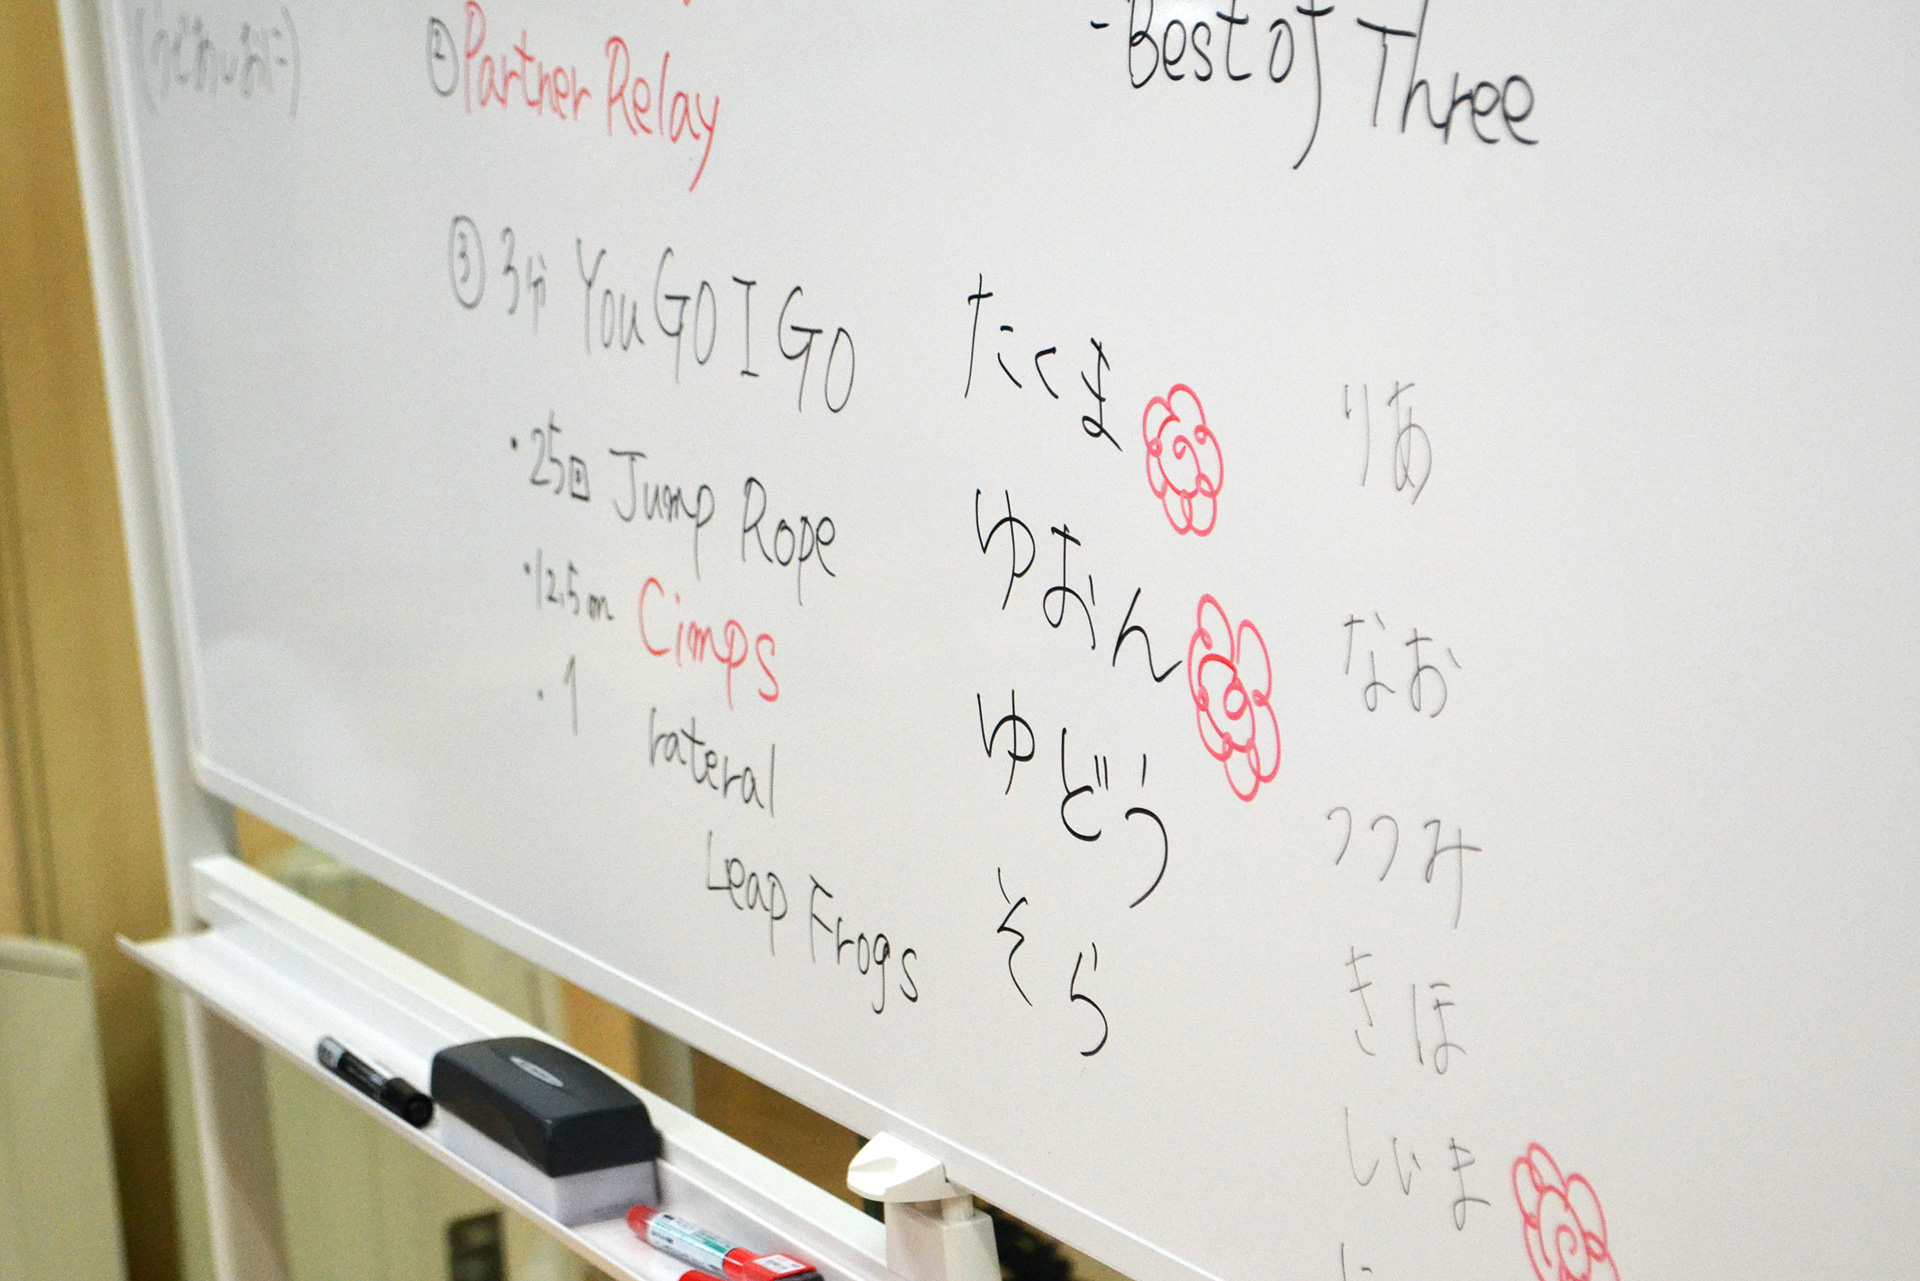 ②Partner Relay
③3分 You GO I GO
・25回 Jump Rope
・12.5m Cimps
・1 rateral
Leap Frogs
-Best of Three
たくま
ゆおん
ゆどう
そら
りあ
なお
つつみ
きほ
しいま